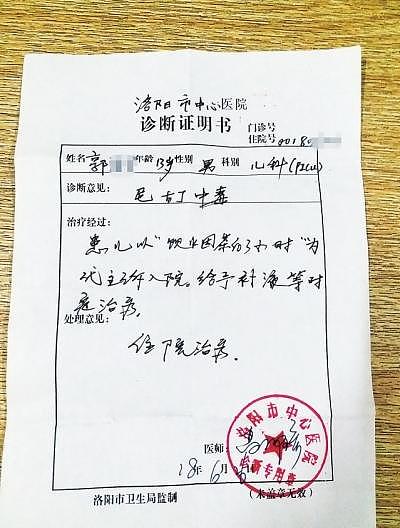 洛阳市中心医院
诊断证明书
门诊号
住院号 00180
姓名 郭 年龄 13岁 性别 男 科别 儿科(PICU)
诊断意见:
尼古丁中毒
治疗经过:
患儿以"饮 小时"为
代主诉入院。给予补液等对
症治疗。
处理意见:
住院治疗.
医师:
18年6月
洛阳市中心医院
诊断专用章
洛阳市卫生局监制
(未盖章无效)